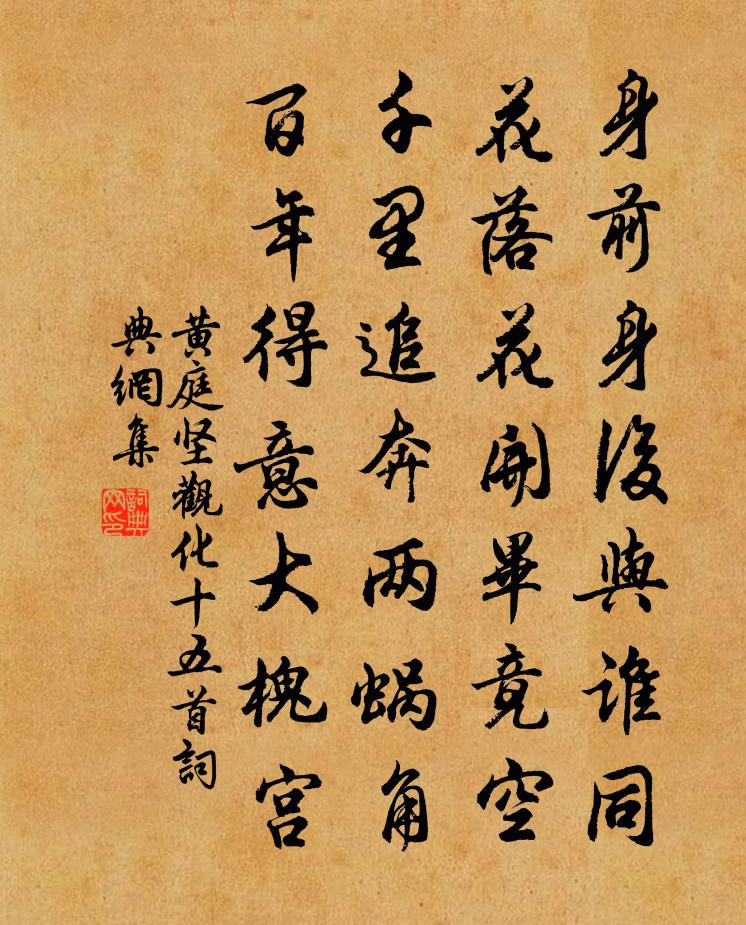 身前身後與誰同
花落花開畢竟空
千里追奔两蜗角
百年得意大槐宫
黄庭坚觀化十五首詞
典網集
詞典
网印